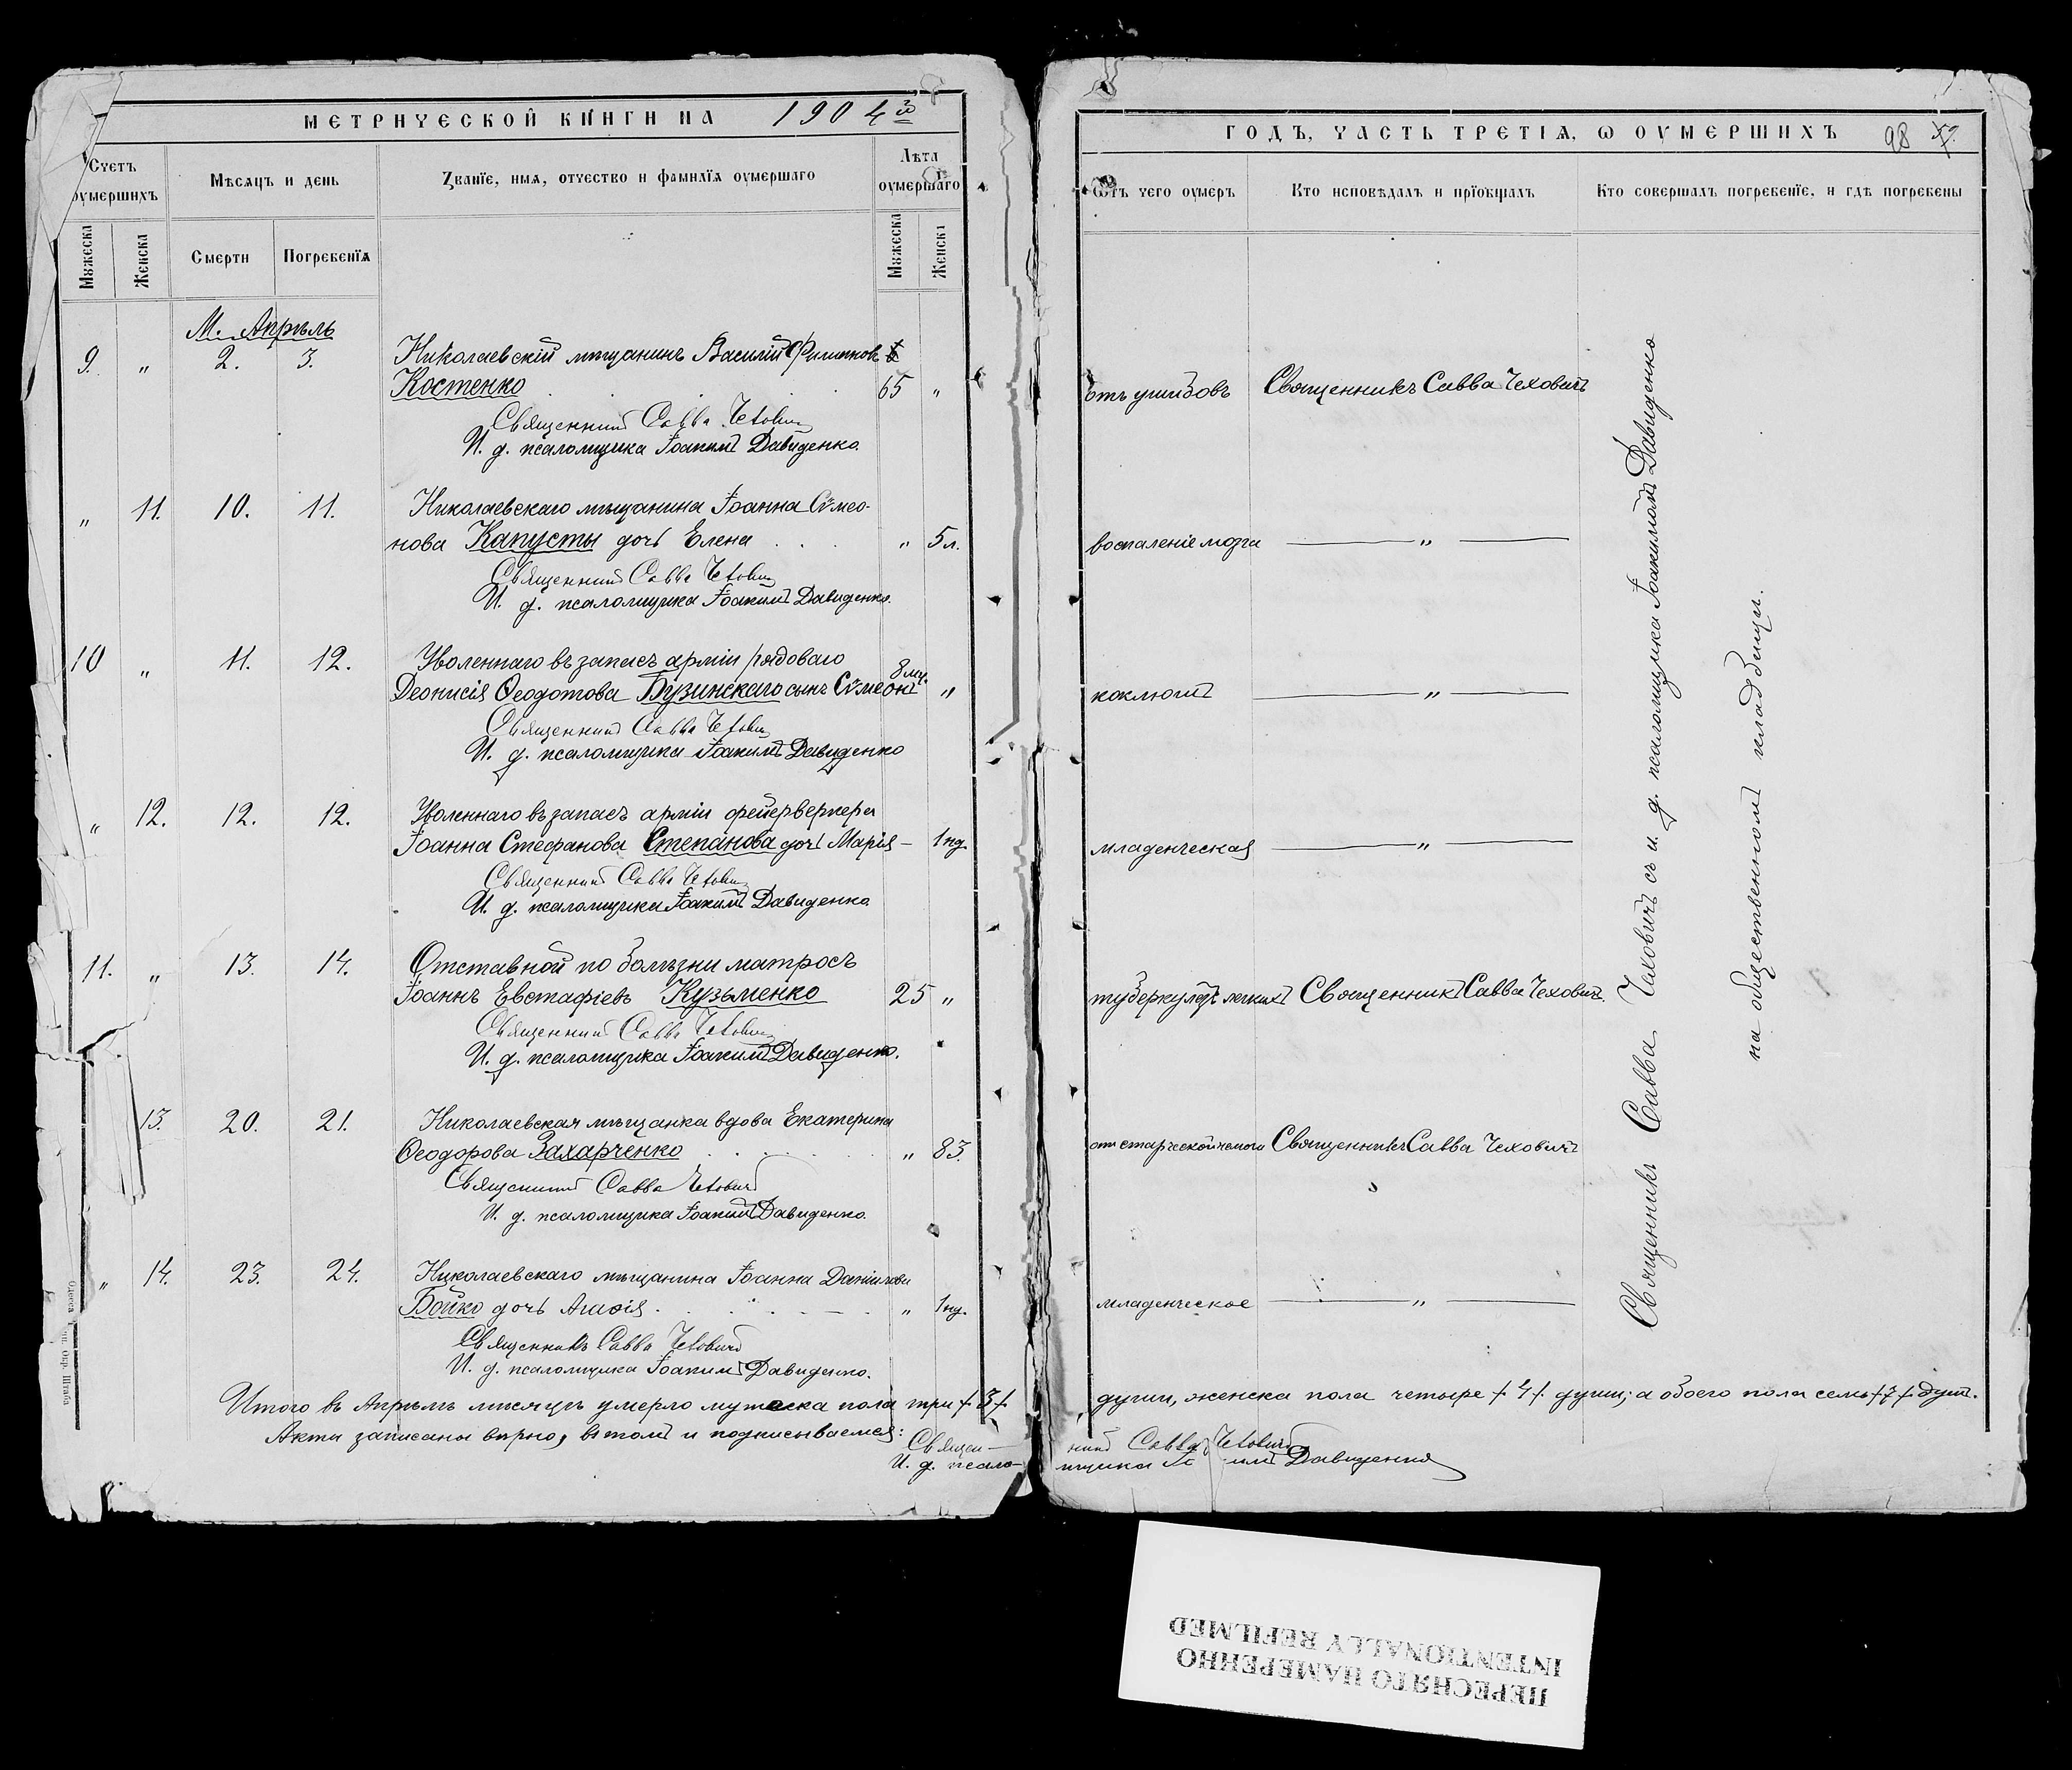 МЕТРИЧЕСКОЙ КНИГИ НА 1904 й
Счетъ оумершихъ
Мѣсяцъ и день
Званїе, имя, отчество и фамилїя оумершаго
Лѣта оумершаго
Мужеска
Женска
Смерти
Погребенїя
Мужеска
Женска
М. Апрѣль
9. " 2. 3. Николаевскій мѣщанинъ Василій Филиповъ
Костенко 65 "
Священникъ Савва Чеховичъ
И. д. псаломщика Іоакимъ Давиденко.
" 11. 10. 11. Николаевскаго мѣщанина Іоанна Сѵмео-
нова Капусты дочь Елена " 5 л.
Священникъ Савва Чеховичъ
И. д. псаломщика Іоакимъ Давиденко.
10 " 11. 12. Уволеннаго въ запасъ арміи рядоваго
Деонисія Ѳеодотова Бузинскаго сынъ Сѵмеонъ 8 мц. "
Священникъ Савва Чеховичъ
И. д. псаломщика Іоакимъ Давиденко
" 12. 12. 12. Уволеннаго въ запасъ арміи фейерверкера
Іоанна Стефанова Степанова дочь Марія - 1 нд.
Священникъ Савва Чеховичъ
И. д. псаломщика Іоакимъ Давиденко
11. " 13. 14. Отставной по болѣзни матросъ
Іоаннъ Евстафіевъ Кузьменко 25 "
Священникъ Савва Чеховичъ
И. д. псаломщика Іоакимъ Давиденко.
13. 20. 21. Николаевская мѣщанка вдова Екатерина
Ѳеодорова Захарченко " 83.
Священникъ Савва Чеховичъ
И. д. псаломщика Іоакимъ Давиденко.
" 14. 23. 24. Николаевскаго мѣщанина Іоанна Даніилова
Бойко дочь Агаѳія " 1 нд.
Священникъ Савва Чеховичъ
И. д. псаломщика Іоакимъ Давиденко.
Итого въ Апрѣлѣ мѣсяцѣ умерло мужеска пола три /3/
Акты записаны вѣрно, въ томъ и подписываемся:
Священ-
И. д. псало-
ГОДЪ, ЧАСТЬ ТРЕТІЯ, Ѡ ОУМЕРШИХЪ 98
Ѿтъ чего оумеръ
Кто исповѣдалъ и прїобщалъ
Кто совершалъ погребенїе, и гдѣ погребены
отъ ушибовъ Священникъ Савва Чеховичъ
воспаленіе мозга — " —
коклюшъ — " —
младенческая — " —
туберкулёзъ легкихъ Священникъ Савва Чеховичъ.
отъ старческой немощи Священникъ Савва Чеховичъ
младенческое — " —
Священникъ Савва Чеховичъ съ и. д. псаломщика Іоакимомъ Давиденко
на общественномъ кладбищѣ.
души, женска пола четыре /4/ души; а обоего пола семь /7/ душъ.
никъ Савва Чеховичъ
мщика Іо имъ Давиденко
ПЕРЕСНЯТО НАМЕРЕННО
INTENTIONALLY REFILMED